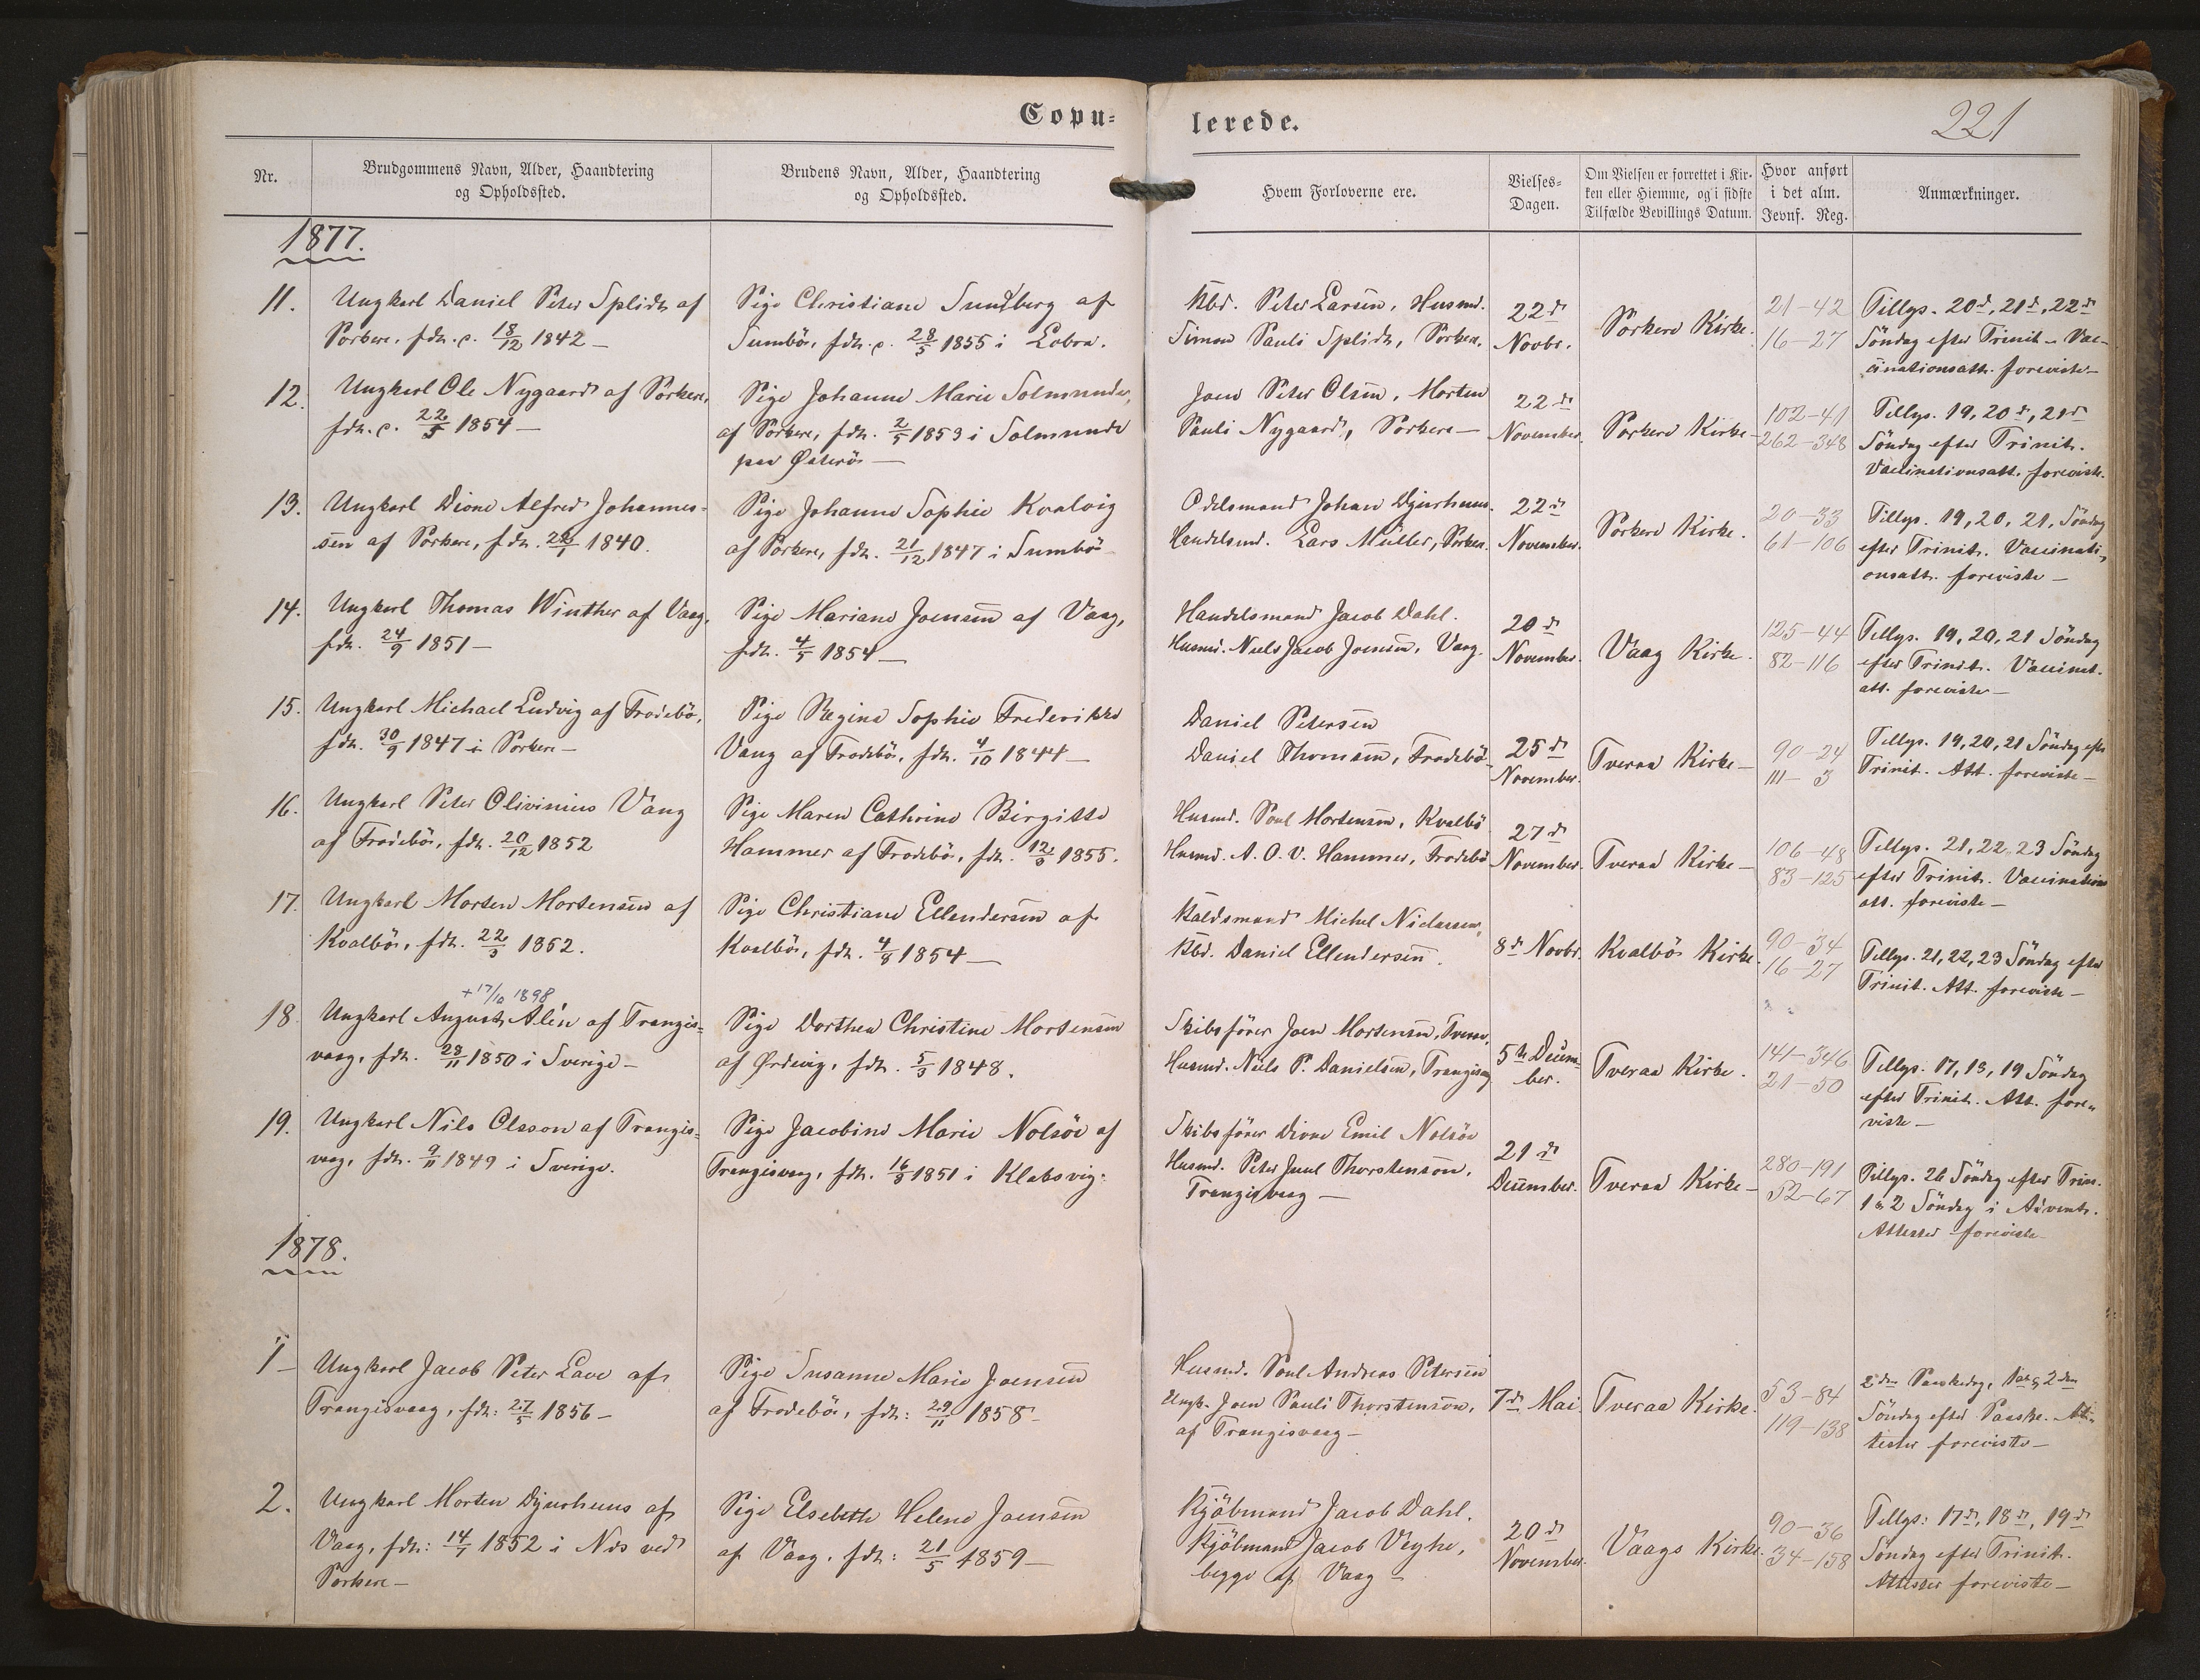 Copu-
lerede.
221
Nr.
Brudgommens Navn, Alder, Haandtering
og Opholdssted.
Brudens Navn, Alder, Haandtering
og Opholdssted.
Hvem Forloverne ere.
Vielses-
Dagen.
Om Vielsen er forrettet i Kir-
ken eller Hjemme, og i sidste
Tilfælde Bevillings Datum.
Hvor anført
i det alm.
Jevnf. Reg.
Anmærkninger.
1877.
11.
Ungkarl Daniel Peter Splidt af
Porkere, fdt. c. 18/12 1842 —
Pige Christiane Sundberg af
Sumbö, fdt. c. 28/5 1855 i Lobra.
Kbd. Peter Larsen, Husmd.
Simon Pauli Splidt, Porkere.
22d
Novbr.
Porkere Kirke.
21-42
16-27
Tillys. 20d, 21d, 22d
Söndag efter Trinit. Vac-
cinationsatt. foreviste —
12.
Ungkarl Ole Nygaard af Porkere,
fdt. c. 22/5 1854 —
Pige Johanne Marie Solmunde,
af Porkere, fdt. 2/5 1853 i Solmunde
paa Österö —
Joen Peter Olsen, Morten
Pauli Nygaard, Porkere —
22d
November.
Porkere Kirke —
102-41
262-348
Tillys. 19, 20d, 21d
Söndag efter Trinit.
Vaccinationsatt. foreviste.
13.
Ungkarl Dione Alfred Johannes-
sen af Porkere, fdt. 22/1 1840.
Pige Johanne Sophie Kvalvig
af Porkere, fdt. 21/12 1847 i Sumbö
Odelsmand Johan Djurhuus.
Handelsmd. Lars Müller, Porkere.
22d
November.
Porkere Kirke.
20-33
61-106
Tillys. 19, 20, 21, Söndag
efter Trinit. Vaccinati-
onsatt. foreviste —
14.
Ungkarl Thomas Winther af Vaag,
fdt. 24/9 1851 —
Pige Mariane Joensen af Vaag,
fdt. 4/5 1854 —
Handelsmand Jacob Dahl.
Husmd. Niels Jacob Joensen, Vaag.
20d
November.
Vaag Kirke.
125-44
82-116
Tillys. 19, 20, 21 Söndag
efter Trinit. Vaccinat.
att. foreviste —
15.
Ungkarl Michael Ludvig af Frodebö,
fdt. 30/9 1847 i Porkere —
Pige Regine Sophie Frederikke
Vang af Frodebö, fdt. 4/10 1844 —
Daniel Petersen
Daniel Thomsen, Frodebö
25d
November.
Tveraa Kirke —
90-24
111-3
Tillys. 19, 20, 21 Söndag efter
Trinit. Att. foreviste —
16.
Ungkarl Peter Olivinius Vang
af Frodebö, fdt. 20/12 1852
Pige Maren Cathrine Birgitte
Hammer af Frodebö, fdt. 12/3 1855.
Husmd. Poul Mortensen, Kvalbö
Husmd. A. O. V. Hammer, Frodebö
27d
November.
Tveraa Kirke —
106-48
83-125
Tillys. 21, 22, 23 Söndag
efter Trinit. Vaccinations
att. foreviste —
17.
Ungkarl Morten Mortensen af
Kvalbö, fdt. 22/3 1852.
Pige Christiane Ellendersen af
Kvalbö, fdt. 4/8 1854 —
Michel Niclassen,
Kbd. Daniel Ellendersen.
8d Novbr.
Kvalbös Kirke.
90-34
16-27
Tillys. 21, 22, 23 Söndag efter
Trinit. Att. foreviste —
+ 17/10 1898
18.
Ungkarl August Alén af Trangis-
vaag, fdt. 28/11 1850 i Sverige —
Pige Dorthea Christine Mortensen
af Ördevig, fdt. 5/3 1848.
Skibsförer Joen Mortensen, Tveraa,
Husmd. Niels P. Danielsen, Trangisvaag
5te Decem-
ber.
Tveraa Kirke.
141-346
21-50
Tillys. 17, 18, 19 Söndag
efter Trinit. Att. fore-
viste —
19.
Ungkarl Nils Olsson af Trangis-
vaag, fdt. 9/11 1849 i Sverige.
Pige Jacobine Marie Nolsöe af
Trangisvaag, fdt. 16/3 1851 i Klaksvig.
Skibsförer Dione Emil Nolsöe
Husmd. Peter Juul Thorstensen,
Trangisvaag —
21d
December.
Tveraa Kirke —
280-191
52-67
Tillys. 26 Söndag efter Trin.
1 & 2 Söndag i Advents.
Attester foreviste —
1878.
1 —
Ungkarl Jacob Peter Lave af
Trangisvaag, fdt: 27/5 1856 —
Pige Susanne Marie Joensen
af Frodebö, fdt: 29/11 1858 —
Husmd. Poul Andreas Petersen
Ungk. Joen Pauli Thorstensen,
af Trangisvaag —
7de Mai
Tveraa Kirke.
53-84
119-138
2den Paaskedag, 1ste & 2den
Söndag efter Paaske. At-
tester foreviste —
2.
Ungkarl Morten Djurhuus af
Vaag, fdt: 14/7 1852 i Næs ved
Porkere —
Pige Elsebeth Helene Joensen
af Vaag, fdt: 21/5 1859 —
Kjöbmand Jacob Dahl.
Kjöbmand Jacob Veyhe,
begge af Vaag —
20d
November.
Vaags Kirke.
90-36
34-158
Tillys: 17d, 18d, 19d
Söndag efter Trinit.
Attester foreviste —